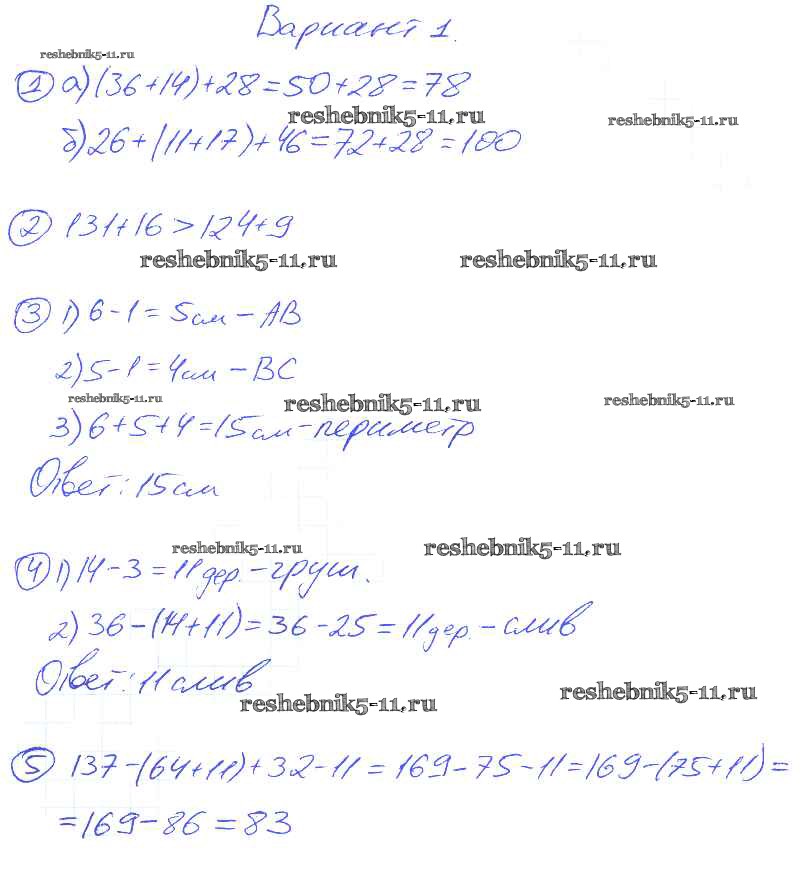 Вариант 1.
reshebnik5-11.ru
① а) (36+14)+28=50+28=78
reshebnik5-11.ru
reshebnik5-11.ru
б) 26+(11+17)+46=72+28=100
② 131+16>124+9
reshebnik5-11.ru
reshebnik5-11.ru
③ 1) 6-1=5см-АВ
2) 5-1=4см-ВС
reshebnik5-11.ru
reshebnik5-11.ru
reshebnik5-11.ru
3) 6+5+4=15см-периметр
Ответ: 15см
reshebnik5-11.ru
reshebnik5-11.ru
④ 1) 14-3=11дер.-груш.
2) 36-(14+11)=36-25=11дер.-слив
Ответ: 11 слив
reshebnik5-11.ru
reshebnik5-11.ru
⑤ 137-(64+11)+32-11=169-75-11=169-(75+11)=
=169-86=83